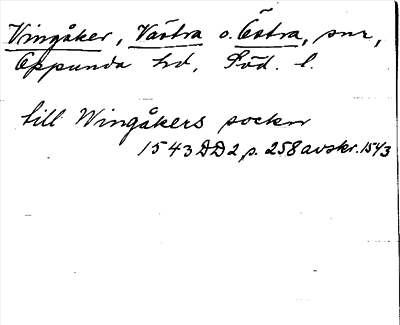 Vingåker, Västra o. Östra, snr,
Oppunda hd, Söd. l.
till Wingåkers sockn
1543 DD2 p. 258 avskr. 1543